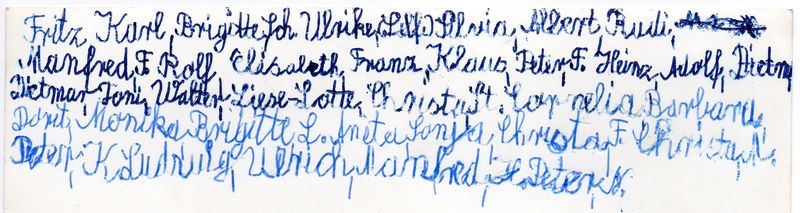 Fritz, Karl, Brigitte Sch. Ulrike, Silvia, Albert, Rudi,
Manfred, F. Rolf, Elisabeth, Franz, Klaus, Peter, F. Heinz, Adolf, Dietm
Dietmar, Toni, Walter, Liese-Lotte, Christa, St. Cornelia Barbara,
Dorit, Monika Brigitte L. Aneta, Sonja, Christa, F. Christa, N.
Peter, K. Ludwig, Ulrich, Manfred, H. Peter, N.